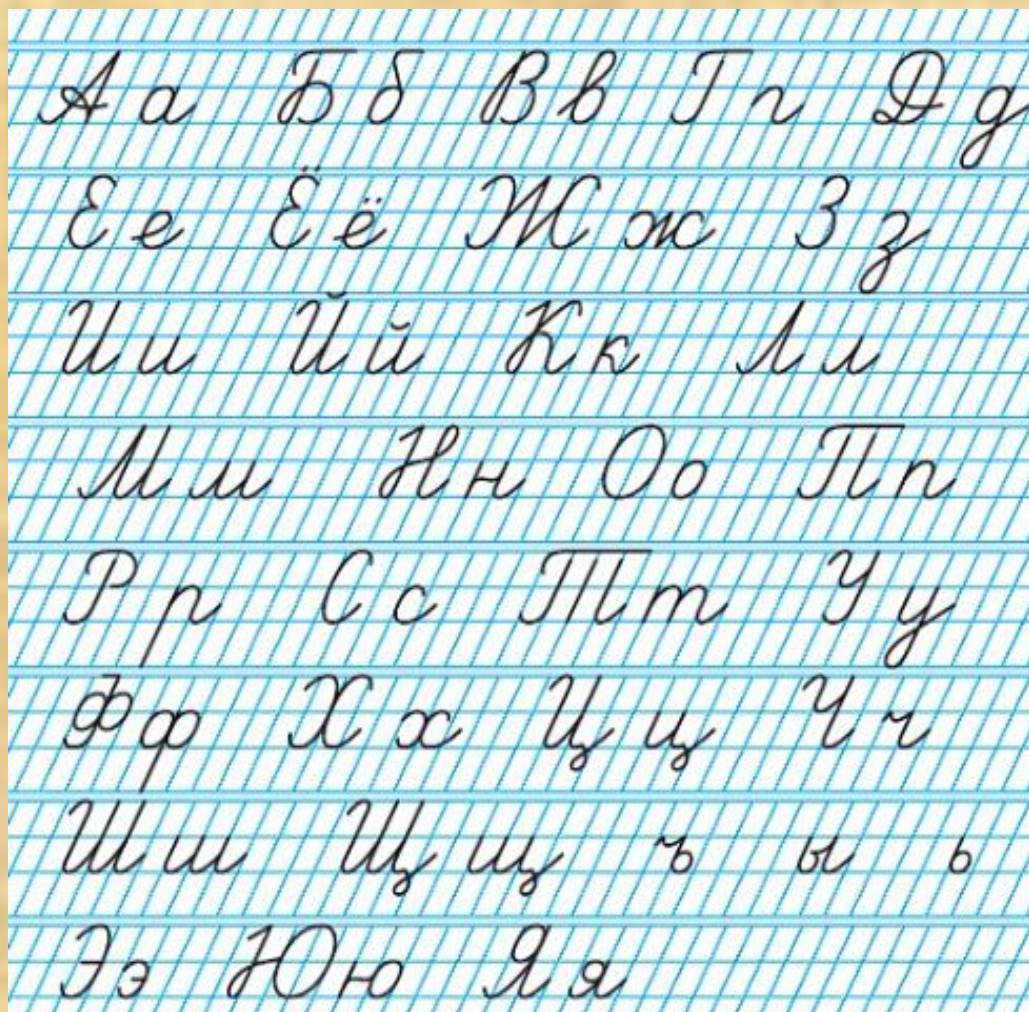 А а Б б В в Г г Д д
Е е Ё ё Ж ж З з
И и Й й К к Л л
М м Н н О о П п
Р р С с Т т У у
Ф ф Х х Ц ц Ч ч
Ш ш Щ щ ъ ы ь
Э э Ю ю Я я